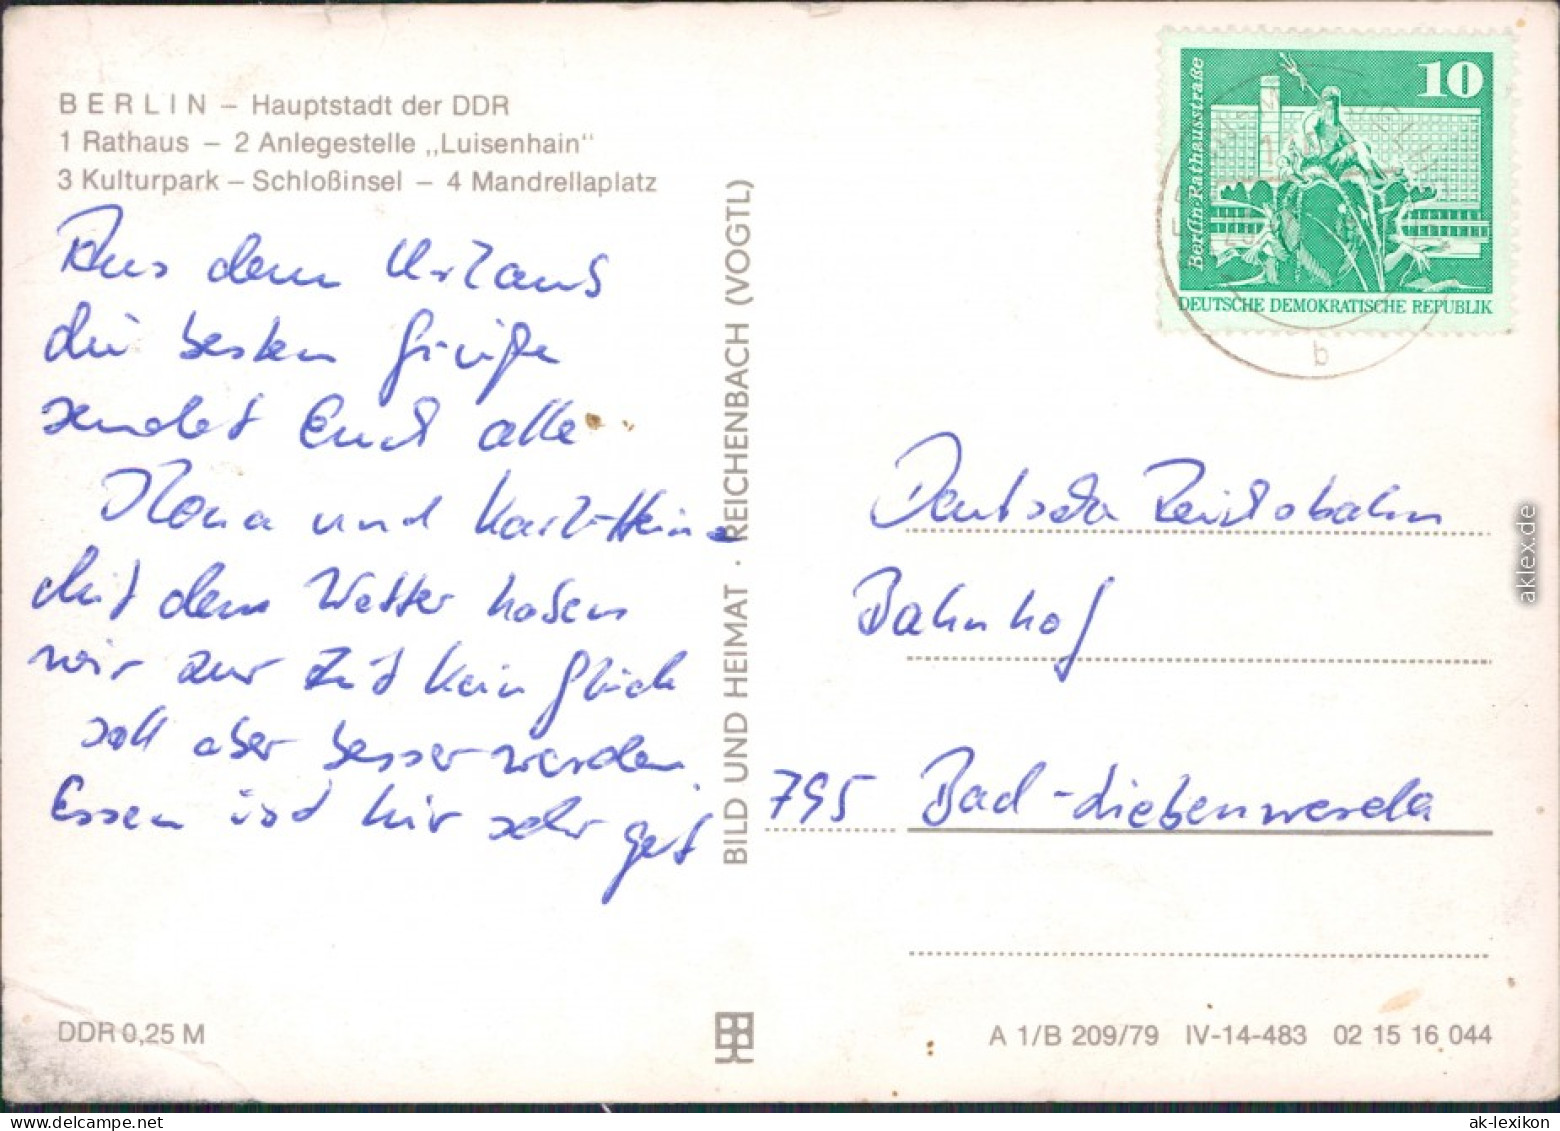 BERLIN – Hauptstadt der DDR
1 Rathaus – 2 Anlegestelle „Luisenhain“
3 Kulturpark – Schloßinsel – 4 Mandrellaplatz
Aus dem Urlaub
die besten Grüße
sendet Euch alle
Mona und Karl-Heinz
Mit dem Wetter haben
wir zur Zeit kein Glück
soll aber besser werden.
Essen ist hier sehr gut
DDR 0,25 M
BILD UND HEIMAT · REICHENBACH (VOGTL)
10
Berlin-Rathausstraße
DEUTSCHE DEMOKRATISCHE REPUBLIK
b
Deutsche Reichsbahn
Bahnhof
795 Bad-Liebenwerda
A 1/B 209/79 IV-14-483 02 15 16 044
aklex.de
ak-lexikon